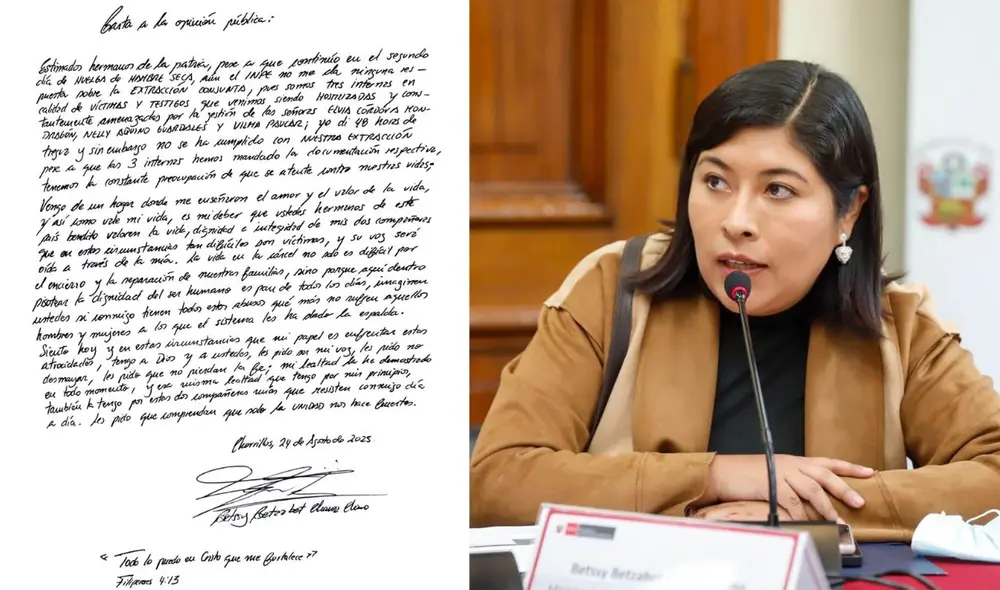 Carta a la opinión pública:
Estimados hermanos de la patria, pese a que continúo en el segundo
día de HUELGA DE HAMBRE SECA, aún el INPE no me da ninguna res-
puesta sobre la EXTRACCIÓN CONJUNTA, pues somos tres internas en
calidad de VÍCTIMAS Y TESTIGOS que venimos siendo HOSTILIZADAS y cons-
tantemente amenazadas por la gestión de las señoras ELVIA CÓRDOVA MON-
DRAGÓN, NELLY AQUINO GUARDALES y VILMA PAUCAR; yo di 48 horas de
tregua y sin embargo no se ha cumplido con NUESTRA EXTRACCIÓN
pese a que las 3 internas hemos mandado la documentación respectiva,
tenemos la constante preocupación de que se atente contra nuestras vidas;
Vengo de un hogar donde me enseñaron el amor y el valor de la vida,
y así como vale mi vida, es mi deber que ustedes hermanos de este
país bendito valoren la vida, dignidad e integridad de mis dos compañeras
que en estas circunstancias tan difíciles son víctimas, y su voz será
oída a través de la mía. La vida en la cárcel no solo es difícil por
el encierro y la separación de nuestras familias, sino porque aquí dentro
pisotear la dignidad del ser humano es pan de todos los días, imaginen
ustedes si conmigo tienen todos estos abusos qué más no sufren aquellos
hombres y mujeres a los que el sistema les ha dado la espalda.
Siento hoy y en estas circunstancias que mi papel es enfrentar estas
atrocidades, tengo a Dios y a ustedes, les pido ser mi voz, les pido no
desmayar, les pido que no pierdan la fe; mi lealtad la he demostrado
en todo momento, y esa misma lealtad que tengo por mis principios,
también la tengo por estas dos compañeras mías que resisten conmigo día
a día. Les pido que comprendan que solo la UNIDAD nos hace fuertes.
Chorrillos, 24 de Agosto de 2025
Betssy Betzabet Chavez Chino
« Todo lo puedo en Cristo que me fortalece »
Filipenses 4:13
Betssy Betzab